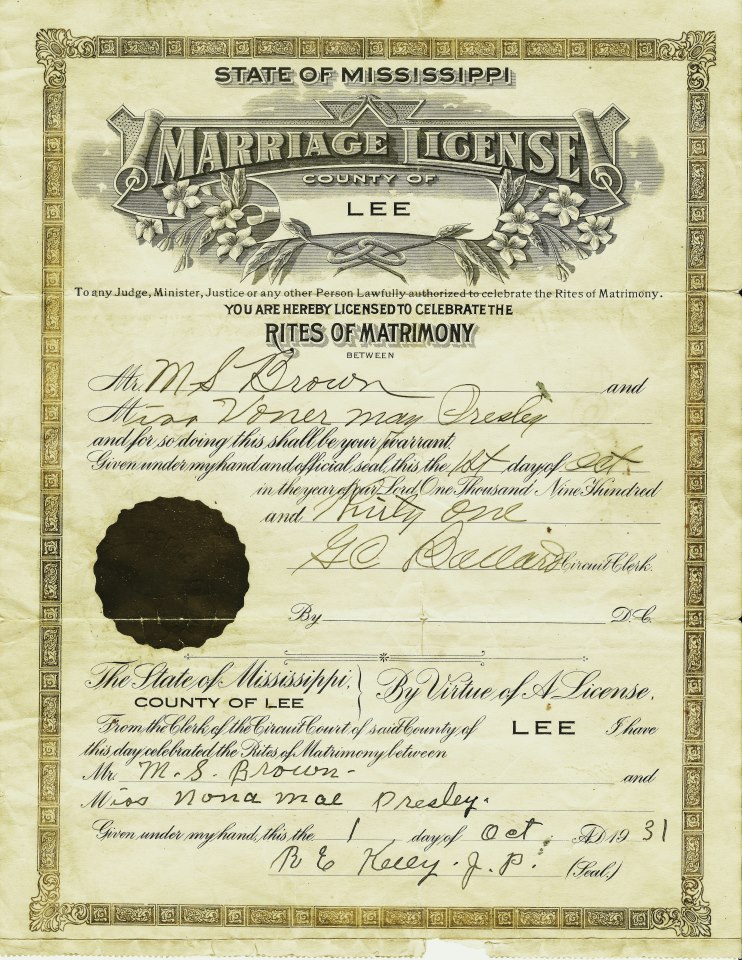 STATE OF MISSISSIPPI
MARRIAGE LICENSE
COUNTY OF
LEE
To any Judge, Minister, Justice or any other Person Lawfully authorized to celebrate the Rites of Matrimony.
YOU ARE HEREBY LICENSED TO CELEBRATE THE
RITES OF MATRIMONY
BETWEEN
Mr. M S Brown and
Miss Voner may Presley
and for so doing this shall be your warrant.
Given under my hand and official seal, this the 1st day of Oct.
in the year of our Lord, One Thousand Nine Hundred
and Thirty one
G C Ballard Circuit Clerk.
By D.C.
The State of Mississippi, By Virtue of A License,
COUNTY OF LEE
From the Clerk of the Circuit Court of said County of LEE I have
this day celebrated the Rites of Matrimony between
Mr. M. S. Brown- and
Miss Nona Mae Presley.
Given under my hand, this the 1 day of Oct AD 19 31
R E Kelly. J. P. (Seal.)